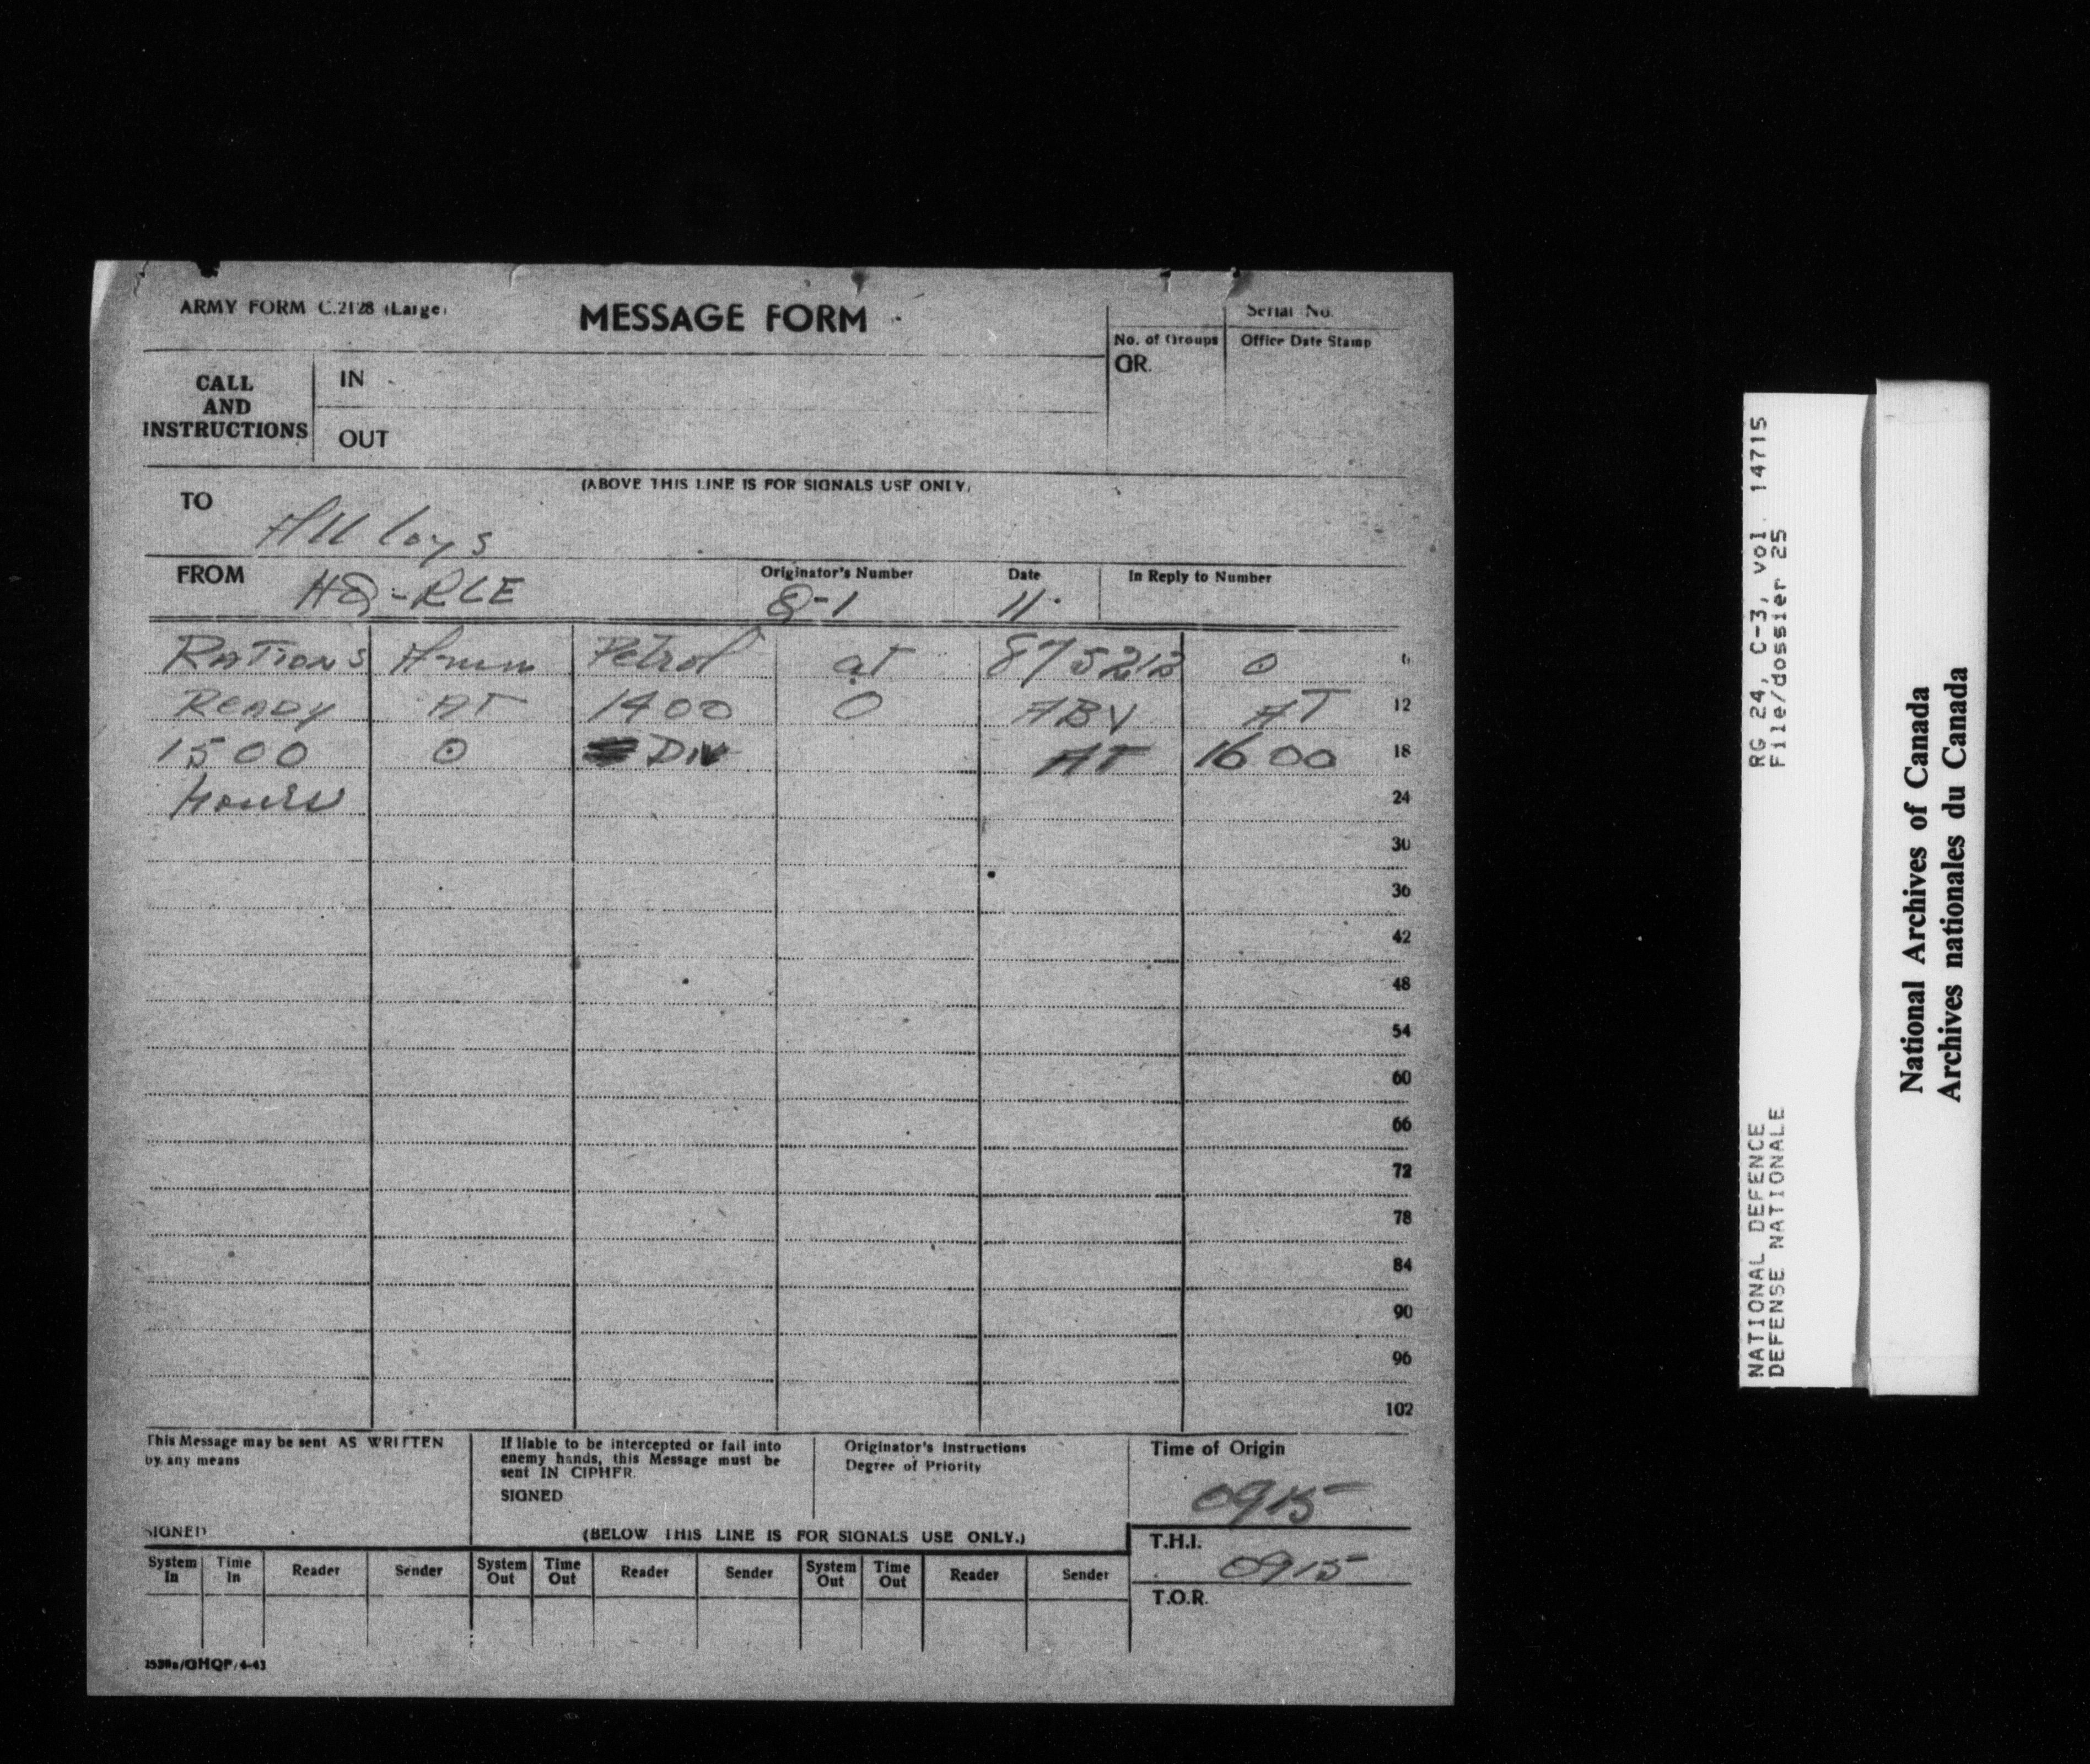 ARMY FORM C.2128 (Large)
MESSAGE FORM
Serial No.
No. of Groups
Office Date Stamp
GR.
CALL AND INSTRUCTIONS
IN
OUT
(ABOVE THIS LINE IS FOR SIGNALS USE ONLY)
TO
All Coys
FROM
HQ-RCE
Originator's Number
Q-1
Date
11.
In Reply to Number
Rations Amm Petrol at 875212 O 6
Ready AT 1400 O ABV AT 12
1500 O DIV AT 1600 18
Hours 24
30
36
42
48
54
60
66
72
78
84
90
96
102
This Message may be sent AS WRITTEN
by any means
SIGNED
If liable to be intercepted or fall into
enemy hands, this Message must be
sent IN CIPHER.
SIGNED
Originator's Instructions
Degree of Priority
Time of Origin
0915
(BELOW THIS LINE IS FOR SIGNALS USE ONLY.)
T.H.I.
0915
T.O.R.
System In Time In Reader Sender System Out Time Out Reader Sender System Out Time Out Reader Sender
/GHQP/4-43
NATIONAL DEFENCE RG 24, C-3, vol. 14715
DEFENSE NATIONALE File/dossier 25
National Archives of Canada
Archives nationales du Canada